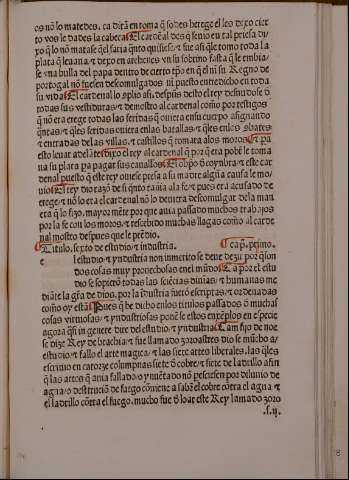 os nõ lo matedes, ca dirã en toma q̃ sodes herege el les dixo cier
to vos le dades la cabeça El cardẽal des q̃ sevio en tal priesa di
xo q̃ lo nõ matase q̃l faria q̃nto quisiese/ & fue asi q̃le tomo toda la
plata q̃ leuaua & dexo en arrehenes vn su sobrino fasta q̃ le embia/
se vna bulla del papa dentro de cierto tp̃o en q̃ el ni su Regno de
portogal nõ fuesen descomulgados ni puesto entredicho en toda
su vida El cardenal lo
todas sus vestiduras/ & demostro al cardenal como por testigos
que nõ era erege todas las feridas q̃ ouiera en su cuerpo asignando
q̃ntas/ & q̃les feridas ouiera en las batallas/ & q̃les en los
& entradas de las villas/ & castillos q̃ tomara alos moros/ & pa
esto leuar adelãte dixo el rey al cardenal q̃ por q̃ era pobre le toma
ua su plata pa pagar sus cauallos El obp̃o d̃ coynbra/ & este car
denal puesto q̃ este rey ouiese presa a su madre algũa causa le mo/
uio El rey dio razõ de si q̃nto tãnia ala fe/ & pues era acusado de
erege/ & nõ lo era el cardenal nõ lo deuiera descomulgar dela man
era q̃ lo fizo, mayormẽte por que auia passado muchos trabajos
por la fe con los moros/ & rescebido muchas llagas como al carde
nal mostro despues que le prẽdio.
Titulo. sexto de estudio & industria. Cap̃. primo.
el estudio/ & yndustria non inmerito se deue dezir por q̃ son
dos cosas muy prouechosas en el mũdo Ca por el estu
dio se sopierõ todas las sciẽcias diuinas/ & humanas me
diãte la grã de dios, por la ĩdustria fuerõ escriptas/ & ordenadas
como oy estã Pues q̃ he dicho enlos titulos passados d̃ muchas
cosas virtuosas/ & yndustriosas ponẽ le estos enxẽplos en especie
agora q̃si in genere dire del estudio/ & yndustria Cam fijo de noe
se dize Rey de brachia/ & fue llamado zoroastres dio se mũcho a/
estudio/ & fallo el arte magica/ & las siete artes liberales, las q̃les
escriuio en catorze columpnas siete d̃ cobre/ & siete de ladrillo a fin
q̃ las artes q̃ auia fallado/ & ynuẽtado nõ peresciesen por diluuio de
agua/ o destruciõ de fuego cõmiene a sabẽ el cobre cõtra el agua &
el ladrillo cõtra el fuego. mucho fue d̃ loar este Rey lamado zoro
.s.ij.
8